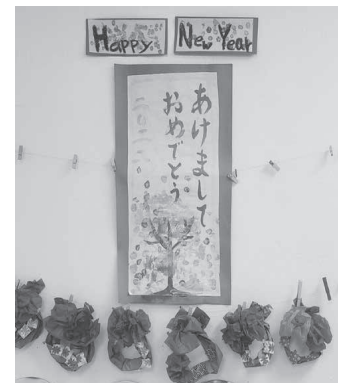 Happy New Year
あけまして
おめでとう